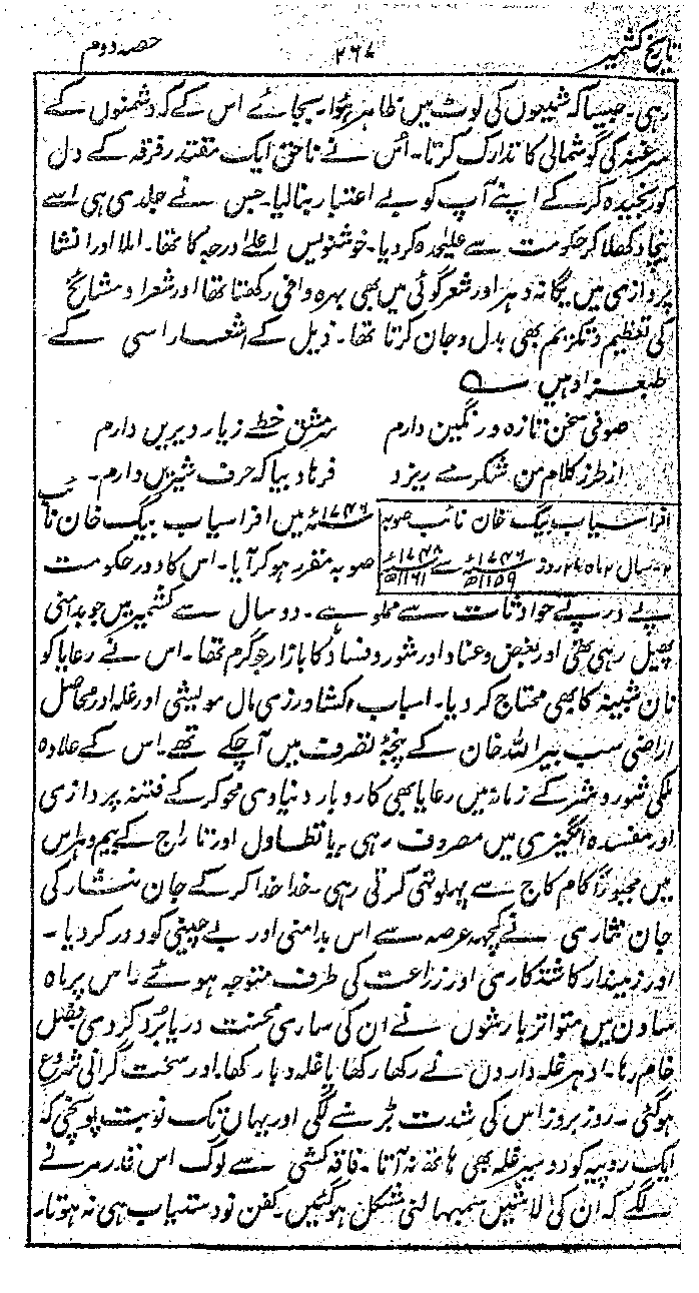 تاریخ کشمیر
۲۶۷
حصہ دوم
رہی۔ جیسا کہ شیعوں کی لوٹ میں ظاہر ہوا۔ بجائے اس کے کہ دشمنوں کے
سرغنہ کی گوشمالی کا تدارک کرتا۔ اس نے ناحق ایک مقتدر فرقہ کے دل
کو رنجیدہ کر کے اپنے آپ کو بے اعتبار بنا لیا۔ جس نے جلدی ہی اسے
نیچا دکھلا کر حکومت سے علیحدہ کر دیا۔ خوشنویس اعلےٰ درجہ کا تھا۔ املا اور انشا
پردازی میں یگانہ دہر اور شعر گوئی میں بھی بہرہ وافی رکھتا تھا اور شعراء و مشائخ
کی تعظیم و تکریم بھی بدل و جان کرتا تھا۔ ذیل کے اشعار اسی کے
طبعزاد ہیں ؎
صوفی سخن تازہ و رنگین دارم سرمشق خطے زیار دیریں دارم
از طرز کلام من شکر مے ریزد فرہاد بیا کہ حرف شیریں دارم۔
افراسیاب بیگ خان نائب صوبہ ۱۷۴۶ء میں افراسیاب بیگ خان نائب
۲۔ سال ۲ ماہ ۲۸ روز ۱۷۴۶ء ۱۱۵۹ھ سے ۱۷۴۸ء ۱۱۶۱ھ صوبہ مقرر ہو کر آیا۔ اس کا دور حکومت
پے در پے حوادثات سے مملو ہے۔ دو سال سے کشمیر میں جو بدامنی
پھیل رہی تھی اور بغض و عناد اور شور و فساد کا بازار جو گرم تھا۔ اس نے رعایا کو
نان شبینہ کا بھی محتاج کر دیا۔ اسباب کشاورزی مال مویشی اور غلہ اور محاصل
اراضی سب بیر اللہ خان کے پنجۂ تصرف میں آ چکے تھے۔ اس کے علاوہ
ملکی شور و شر کے زمانہ میں رعایا بھی کاروبار دنیاوی محو کر کے فتنہ پردازی
اور مفسدہ انگیزی میں مصروف رہی یا تطاول اور تاراج کے بیم و ہراس
میں مجبوراً کام کاج سے پہلو تہی کرتی رہی۔ خدا خدا کر کے جان نثار کی
جان نثاری نے کچھ عرصہ سے اس بدامنی اور بے چینی کو دور کر دیا۔
اور زمیندار کاشتکاری اور زراعت کی طرف متوجہ ہوئے۔ اس پر ماہ
ساون میں متواتر بارشوں نے ان کی ساری محنت دریا برد کر دی فصل
خام رہا۔ ادہر غلہ داروں نے رکھا رکھایا غلہ دبا رکھا۔ اور سخت گرانی شروع
ہو گئی۔ روز بروز اس کی شدت بڑھنے لگی اور یہاں تک نوبت پہونچی کہ
ایک روپیہ کو دو سیر غلہ بھی ہاتھ نہ آتا۔ فاقہ کشی سے لوگ اس قدر مرنے
لگے کہ ان کی لاشیں سمبہالنی مشکل ہو گئیں۔ کفن تو دستیاب ہی نہ ہوتا۔